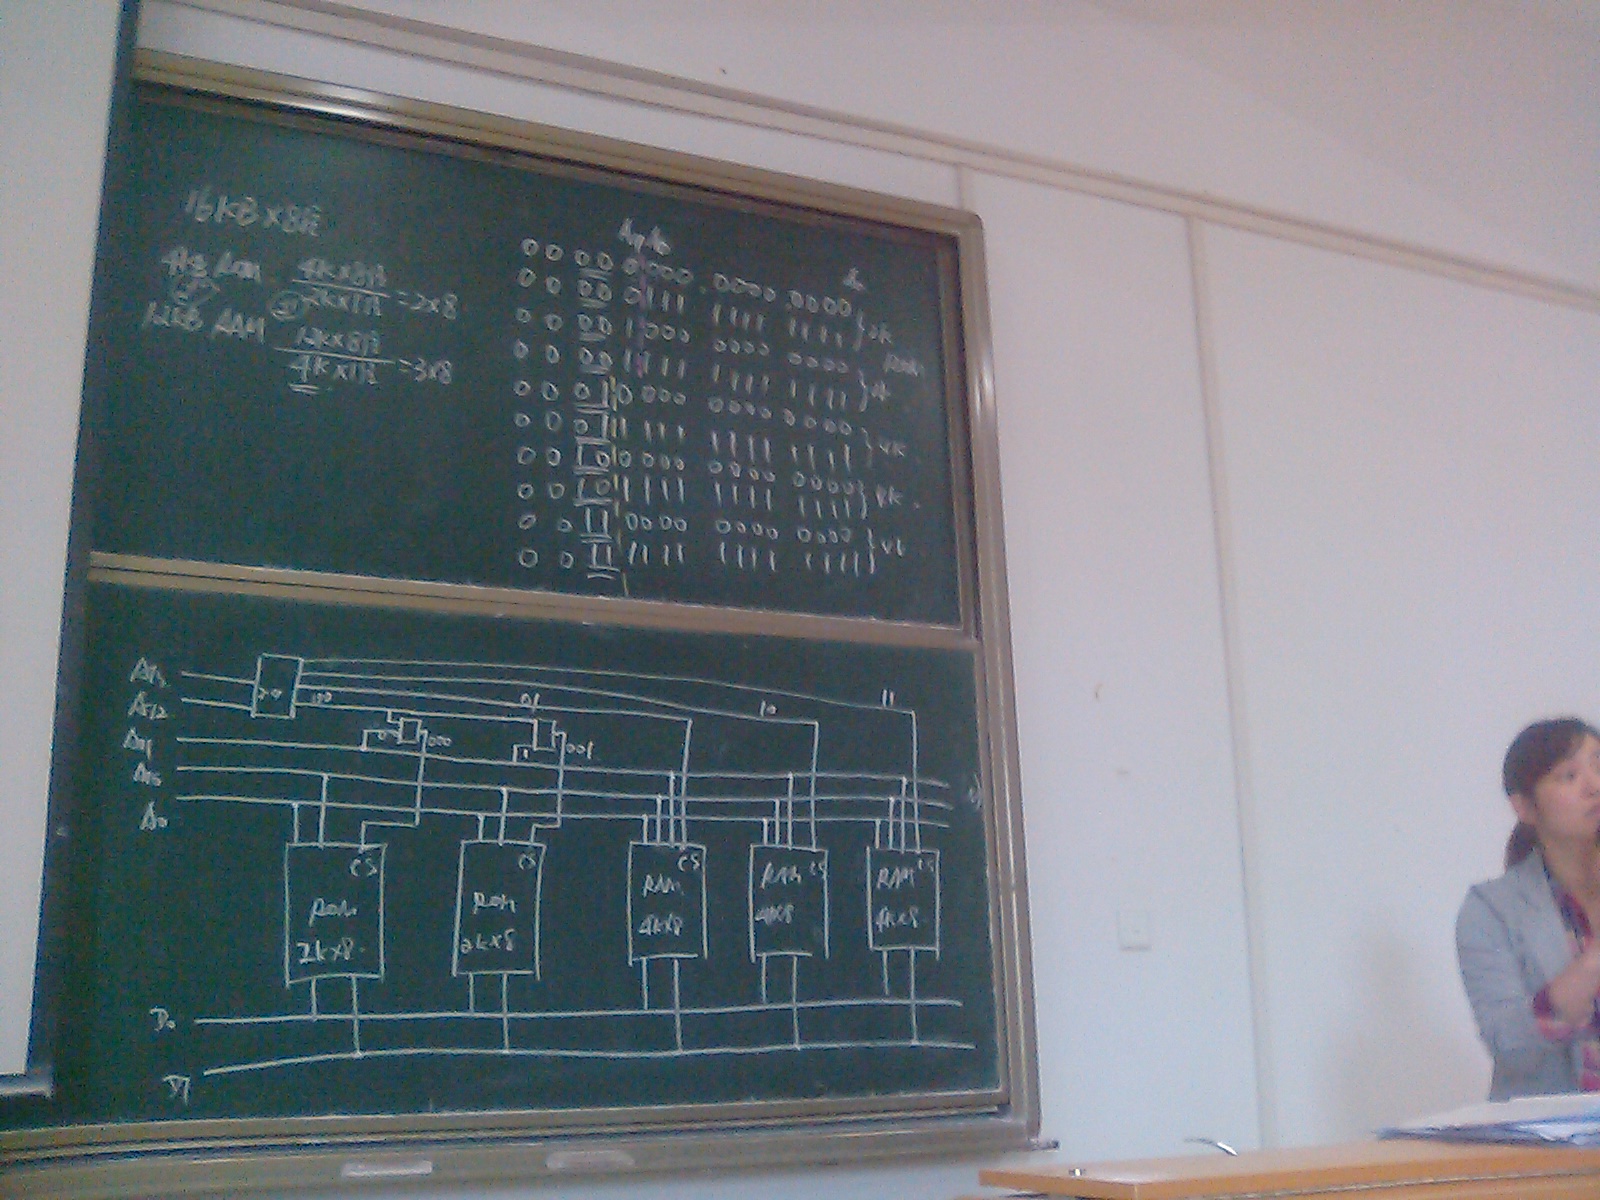 16KB×8位
4KB ROM 4K×8位 / 2K×1位 =2×8
12KB RAM 12K×8位 / 4K×1位 =3×8
A11 A10 A0
0 0 00 0000 0000 0000
0 0 00 0111 1111 1111 }2K
0 0 00 1000 0000 0000 ROM
0 0 00 1111 1111 1111 }2K
0 0 01 0000 0000 0000
0 0 01 1111 1111 1111 }4K
0 0 10 0000 0000 0000
0 0 10 1111 1111 1111 }4K
0 0 11 0000 0000 0000
0 0 11 1111 1111 1111 }4K
A13
A12 00 01 10 11
A11 000 001
A10
A0
CS CS CS CS CS
ROM ROM RAM RAM RAM
2K×8 2K×8 4K×8 4K×8 4K×8
D0
D7